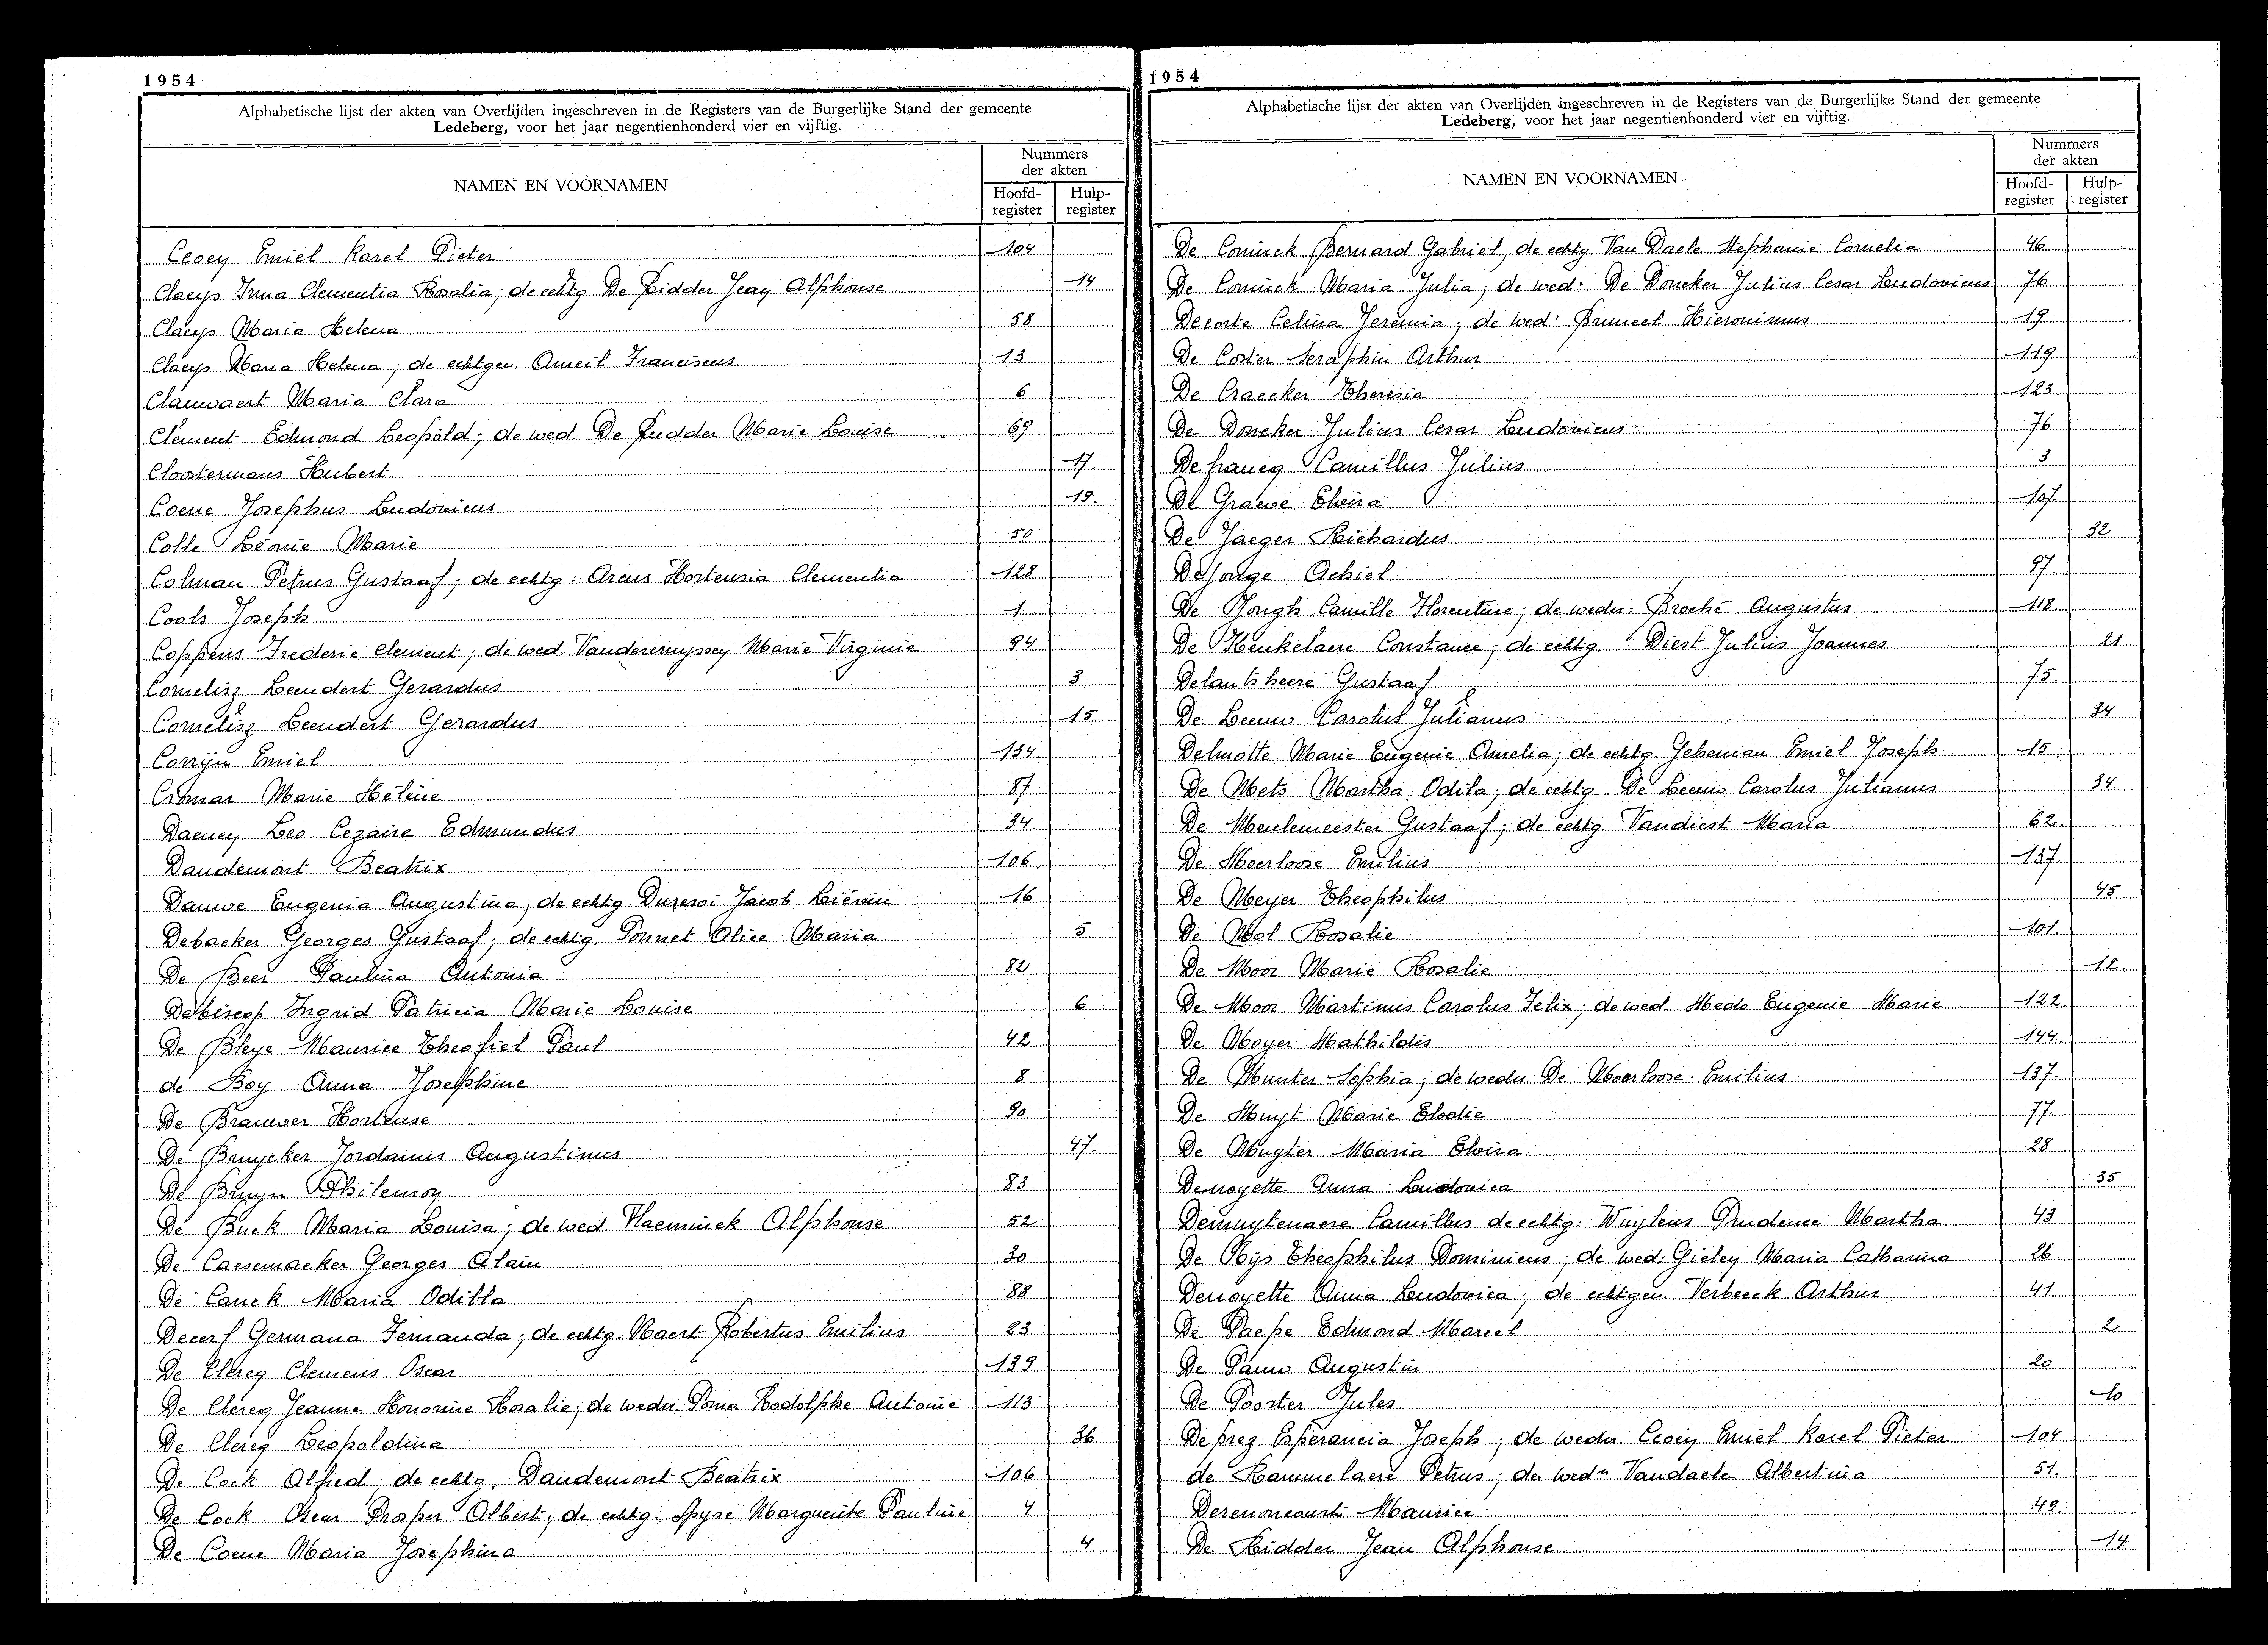 1954
Alphabetische lijst der akten van Overlijden ingeschreven in de Registers van de Burgerlijke Stand der gemeente
Ledeberg, voor het jaar negentienhonderd vier en vijftig.
NAMEN EN VOORNAMEN
Nummers
der akten
Hoofd-
register
Hulp-
register
Ceoey Emiel Karel Pieter 104
Claeys Irma Clementia Rosalia; de echtg De Ridder Jean Alphonse 14
Claeys Maria Helena 58
Claeys Maria Helena; de echtgen Ameil Franciscus 13
Clauwaert Maria Clara 6
Clement Edmond Leopold; de wed De Rudder Marie Louise 69
Cloostermans Hubert 17
Coene Josephus Ludovicus 18
Colle Léonie Marie 50
Colman Petrus Gustaaf; de echtg: Arens Hortensia Clementia 128
Cools Joseph 1
Coppens Frederic Clement; de wed. Vandercruyssen Marie Virginie 94
Cornelisz Leendert Gerardus 3
Cornelisz Leendert Gerardus 15
Corrijn Emiel 134
Cromar Marie Hélène 87
Daeney Leo Cezaire Edmundus 34
Daudemont Beatrix 106
Dauwe Eugenia Augustina; de echtg Duresoi Jacob Liévin 16
Debacker Georges Gustaaf; de echtg. Ponnet Alice Maria 5
De Beer Paulina Antonia 82
Debiscop Ingrid Patricia Marie Louise 6
De Bleye Maurice Theofiel Paul 42
de Bog Anna Josephine 8
De Brauwer Hortense 90
De Bruycker Jordanus Augustinus 47
De Bruyn Philemon 83
De Buck Maria Louisa; de wed Haeminck Alphonse 52
De Caesemaeker Georges Alain 30
De Canck Maria Odilla 88
Decerf Germana Fernanda; de echtg. Naert Robertus Emilius 23
De Clercq Clemens Oscar 139
De Clercq Jeanne Honorine Rosalie, de wedn Poma Rodolphe Antoine 113
De Clercq Leopoldina 36
De Cock Alfred; de echtg. Daudemont Beatrix 106
De Cock Oscar Prosper Albert; de echtg. Spyse Marguerite Pauline 4
De Coene Maria Josephina 4
1954
Alphabetische lijst der akten van Overlijden ingeschreven in de Registers van de Burgerlijke Stand der gemeente
Ledeberg, voor het jaar negentienhonderd vier en vijftig.
NAMEN EN VOORNAMEN
Nummers
der akten
Hoofd-
register
Hulp-
register
De Coninck Bernard Gabriel; de echtg Van Daele Stephanie Cornelia 46
De Coninck Maria Julia; de wed: De Doncker Julius Cesar Ludovicus 76
Decorte Celina Jeremia; de wed: Bruneel Hieronimus 19
De Coster Seraphin Arthur 119
De Craecker Theresia 123
De Doncker Julius Cesar Ludovicus 76
Defrancq Camillus Julius 3
De Graeve Elvira 107
De Jaeger Richardus 32
De Jonge Achiel 97
De Jongh Camille Florentine; de wedn: Broché Augustus 118
De Keukelaere Constance; de echtg. Diest Julius Joannes 21
Delantsheere Gustaaf 75
De Leeuw Carolus Julianus 34
Delmotte Marie Eugenie Amelia; de echtg. Gekeman Emiel Joseph 15
De Mets Martha Odila; de echtg De Leeuw Carolus Julianus 34
De Meulemeester Gustaaf; de echtg Vandiest Maria 62
De Moerloose Emilius 137
De Meyer Theophilus 45
De Mol Rosalie 101
De Moor Marie Rosalie 12
De Moor Martinus Carolus Felix; de wed Meds Eugenie Marie 122
De Moyer Mathildis 144
De Munter Sophia; de wedn De Moerloose Emilius 137
De Muyt Marie Elodie 77
De Muyter Maria Elvira 28
Denoyette Anna Ludovica 35
Demuytenaere Camillus de echtg: Wuytens Prudence Martha 43
De Nijs Theophilus Dominicus; de wed: Gieley Maria Catharina 26
Denoyette Anna Ludovica; de echtgen. Verbeeck Arthur 41
De Paepe Edmond Marcel 2
De Pauw Augustin 20
De Poorter Jules 10
Deprez Esperancia Joseph; de wedn Ceoey Emiel Karel Pieter 104
de Rammelaere Petrus; de wedn Vandaele Albertina 51
Derenoncourt Maurice 49
De Ridder Jean Alphonse 14